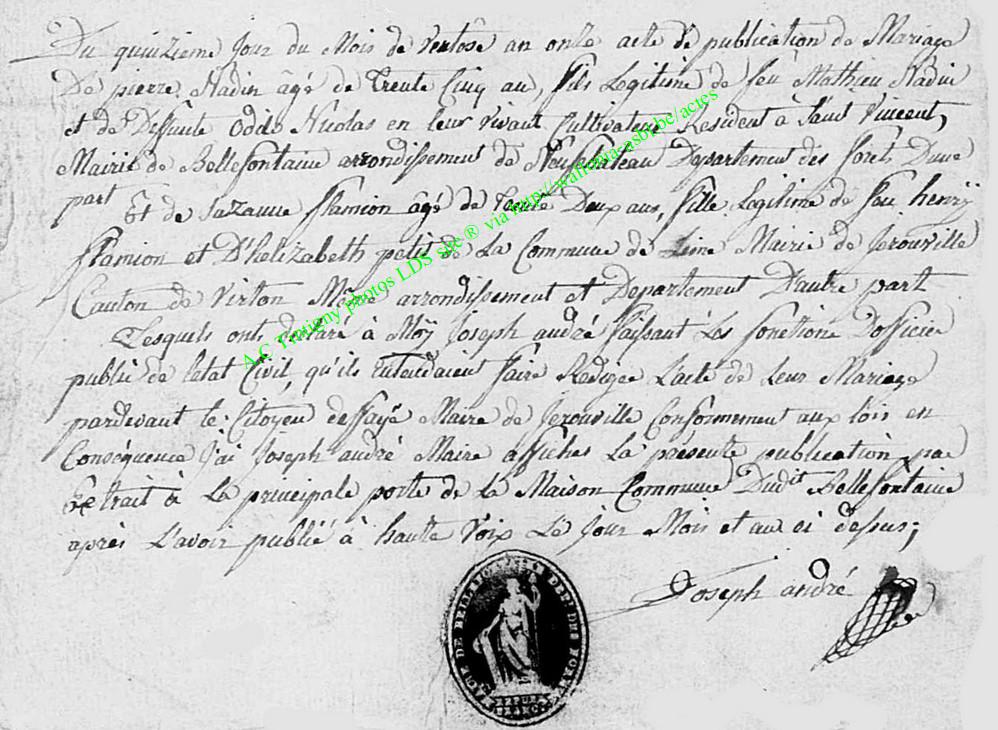 Du quinzieme jour du Mois de Ventôse an onze acte de publication de Mariage
De pierre Nadin âgé de trente Cinq an, fils Legitime de feu Mathieu Nadin
et de Deffunte Odde Nicolas en leur vivant Cultivateurs Resident à Saint Vincent,
Mairie de Bellefontaine arrondissement de Neufchateau Departement des forets Dune
part Et de Suzanne flamion agé de trente Deux ans, fille Legitime de feu henrij
flamion et D'helizabeth petit de La Commune de Mairie de Jerouville
Canton de Virton Même arrondissement et Departement Dautre part
Lesquels ont declaré à Moÿ Joseph andré faissant Les fonctions Dofficier
publié de letat Civil, qu'ils Entendaient faire Rediger L'acte de Leur Mariage
pardevant le Citoyen Maire de Jerouville Conformement aux lois en
Conséquence J'ai Joseph andré Maire affiches La présente publication par
Extrait à La principale porte de La Maison Commune Dudit Bellefontaine
après L'avoir publié à haute Voix Le jour Mois et an ci dessus;
Joseph andré
A.C Tintigny photos LDS site ® via http://wallonia-asbl.be/actes